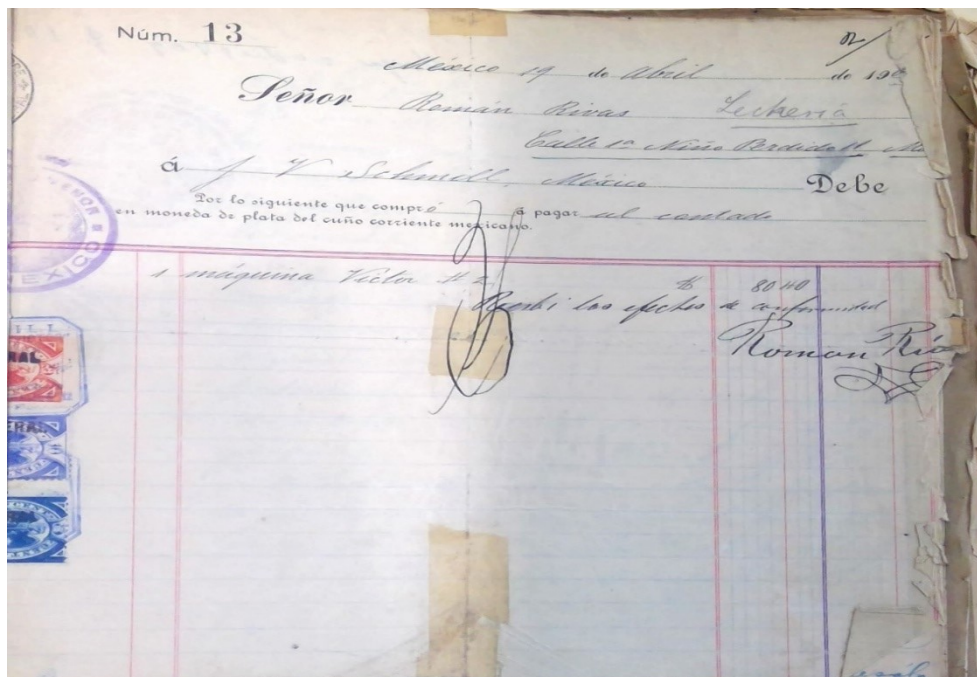 Núm. 13
México 19 de Abril de 190
Señor Román Rivas Lechería
Calle 1ª Niño Perdido
á J V Schmill, México Debe
Por lo siguiente que compró á pagar al contado
en moneda de plata del cuño corriente mexicano.
1 máquina Victor # 2 $ 80 40
Recibí los efectos de conformidad
Roman
MEXICO